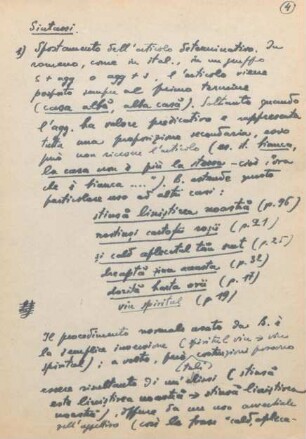 4
Sintassi.
1) Spostamento dell'articolo determinativo. In
romeno, come in ital., in un gruppo
s + agg o agg + s, l'articolo viene
sempre al primo termine
(casa albă, alba casă). Soltanto quando
l'agg. ha valore predicativo e rappresenta
tutta una proposizione secondaria, esso
può non ricevere l'articolo (es. it. bianca,
la casa non è più la stessa – cioè "ora
che è bianca ....."). B. estende questo
particolare uso ad altri casi:
stinsă liniștirea noastră (p. 96)
nestinși cactușii roșii (p. 21)
și cald aplecatul tău nat (p. 25)
(p. 32)
(p. 17)
vin spirital (p. 19)
Il procedimento normale usato da B. è
la semplice inversione (spirital vin → vin
spirital); a volte, però costruzioni possono
(tali)
essere risultante di un' (stinsă
este liniștirea noastră → stinsă liniștirea
noastră), oppure da un uso avverbiale
dell'aggettivo (così la frase "cald aplecatul